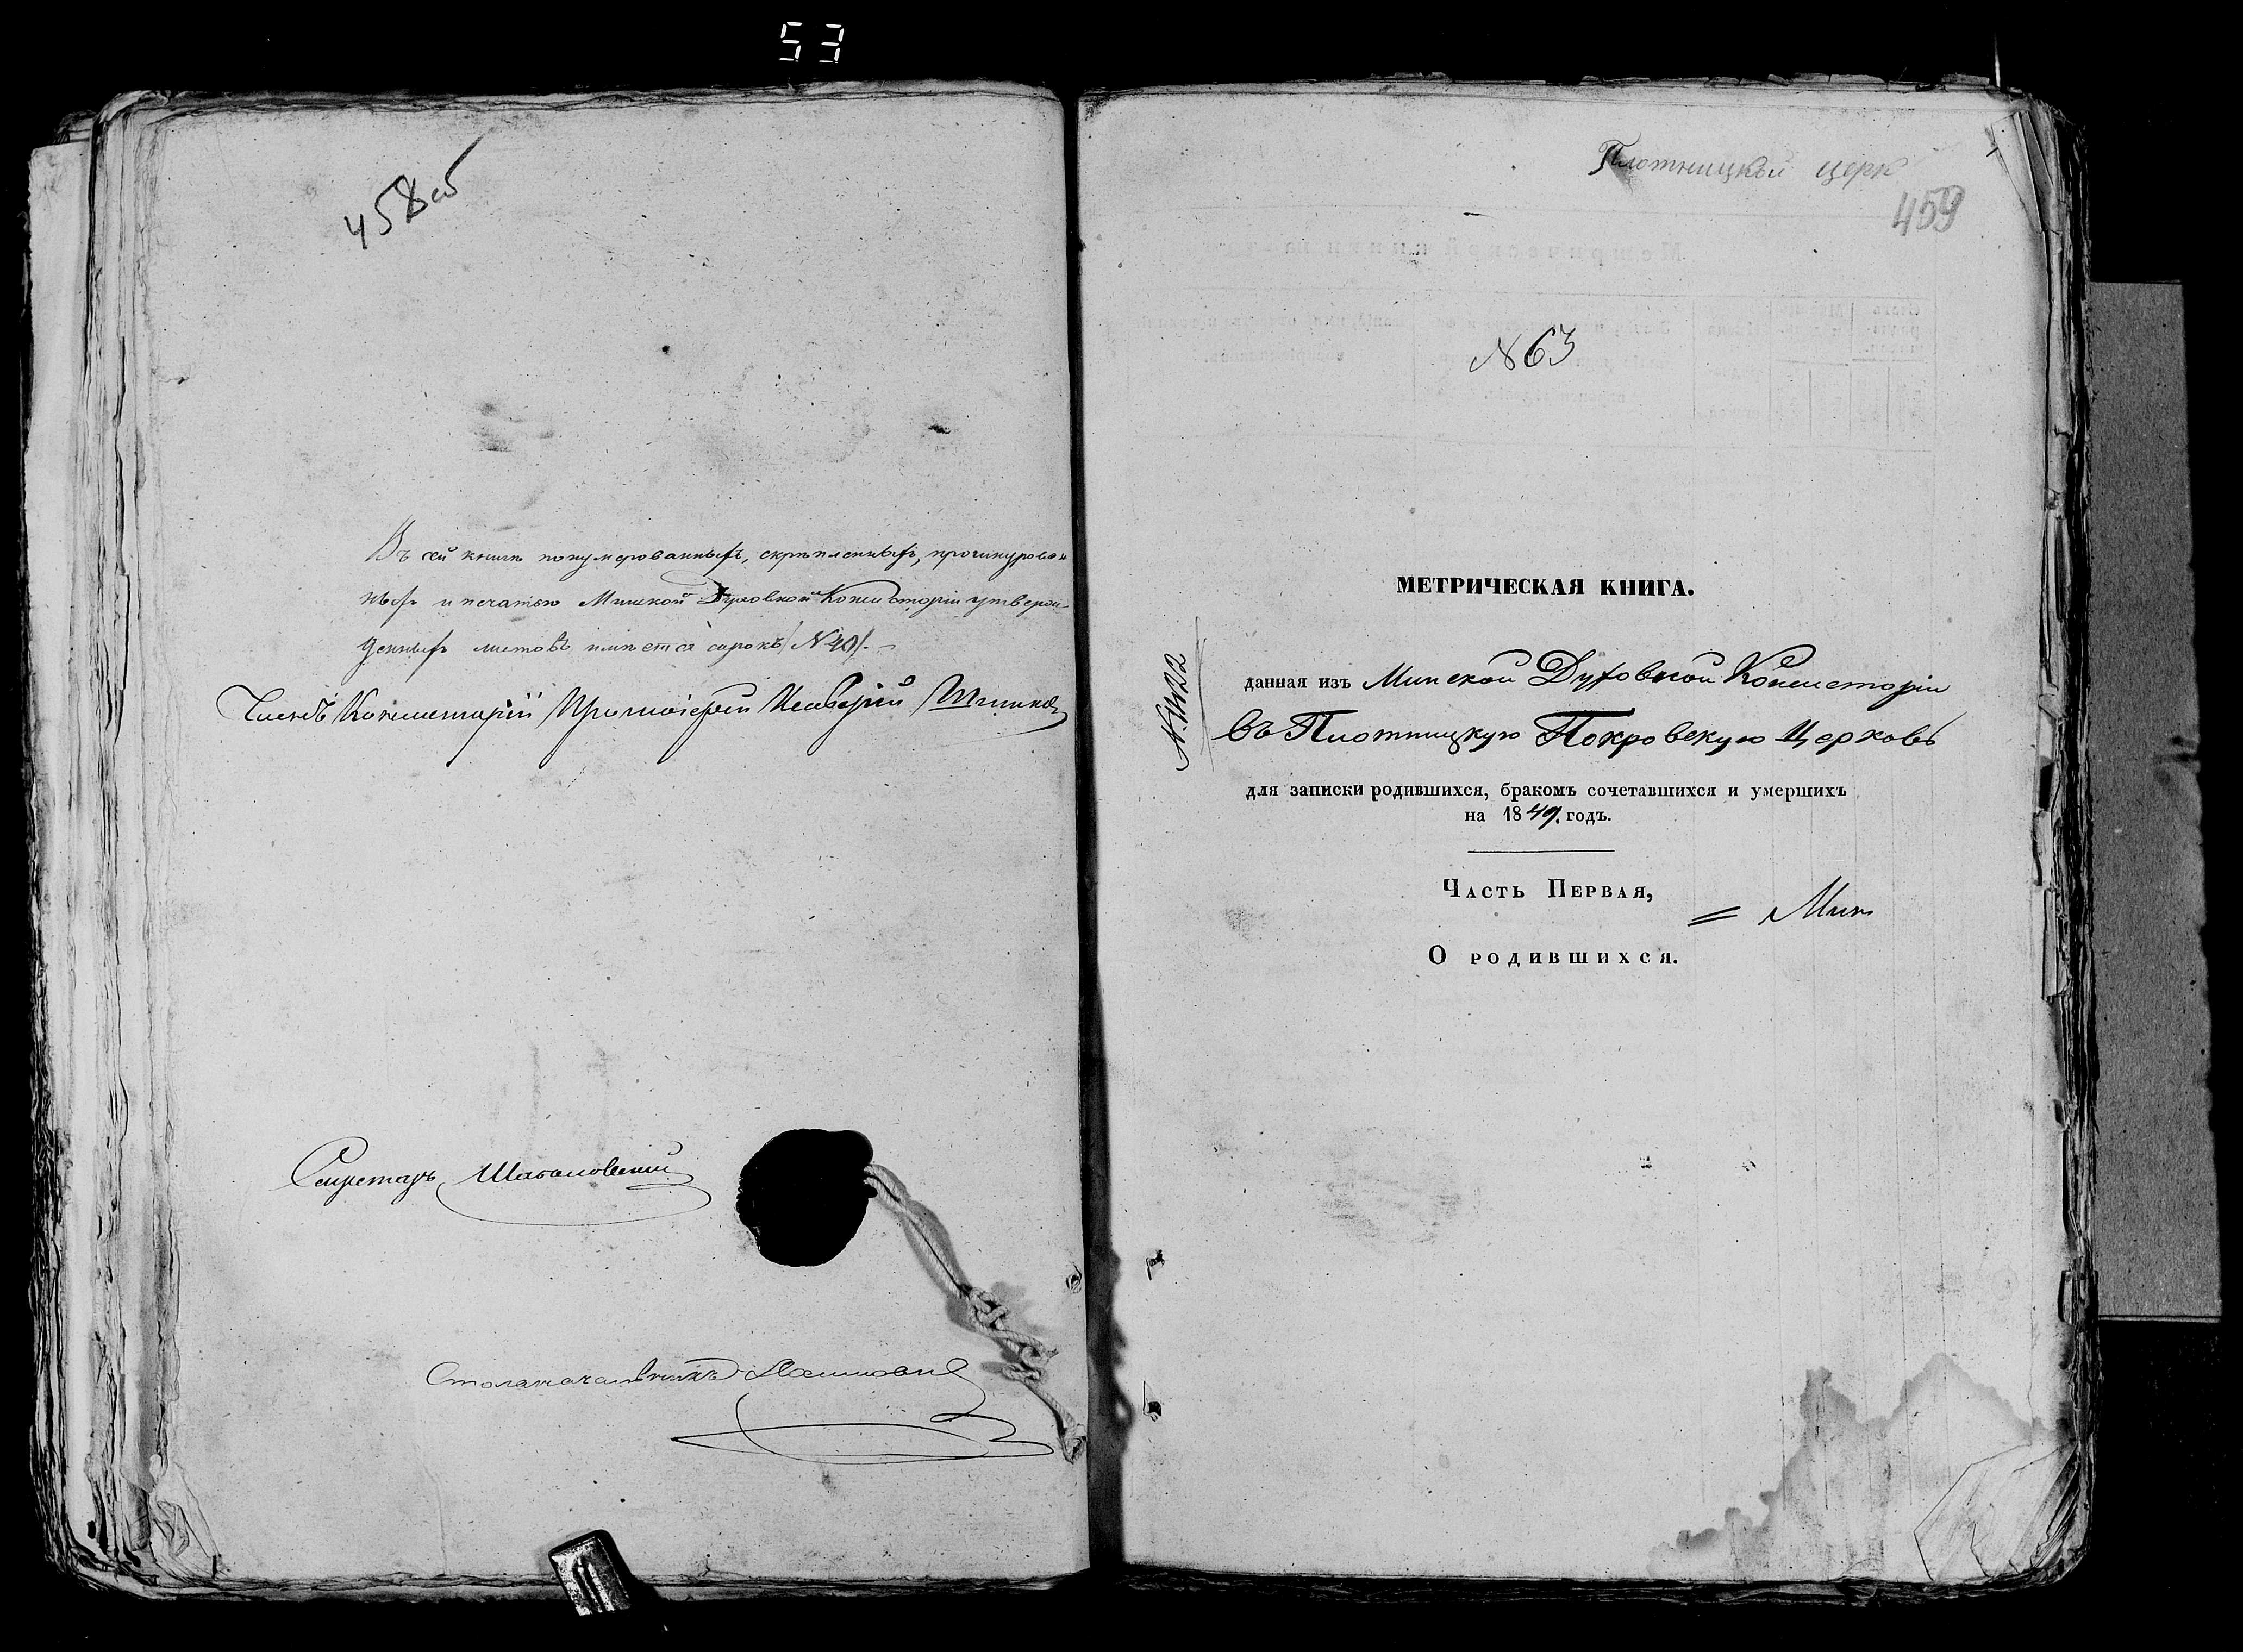 53
458об
Въ сей книгѣ понумерованныхъ, скрѣпленныхъ, прошнурован
ныхъ и печатью Минской Духовной Консисторіи утверж
денныхъ листовъ имѣется сорокъ /№ 40/.
Членъ Консисторіи Протоіерей
Секретарь
Столоначальникъ
Плотницкой церк
459
№ 63
МЕТРИЧЕСКАЯ КНИГА.
данная изъ Минской Духовной Консисторіи
въ Плотницкую Покровскую Церковь
для записки родившихся, бракомъ сочетавшихся и умершихъ
на 1849. годъ.
Часть Первая,
= Мин
О родившихся.